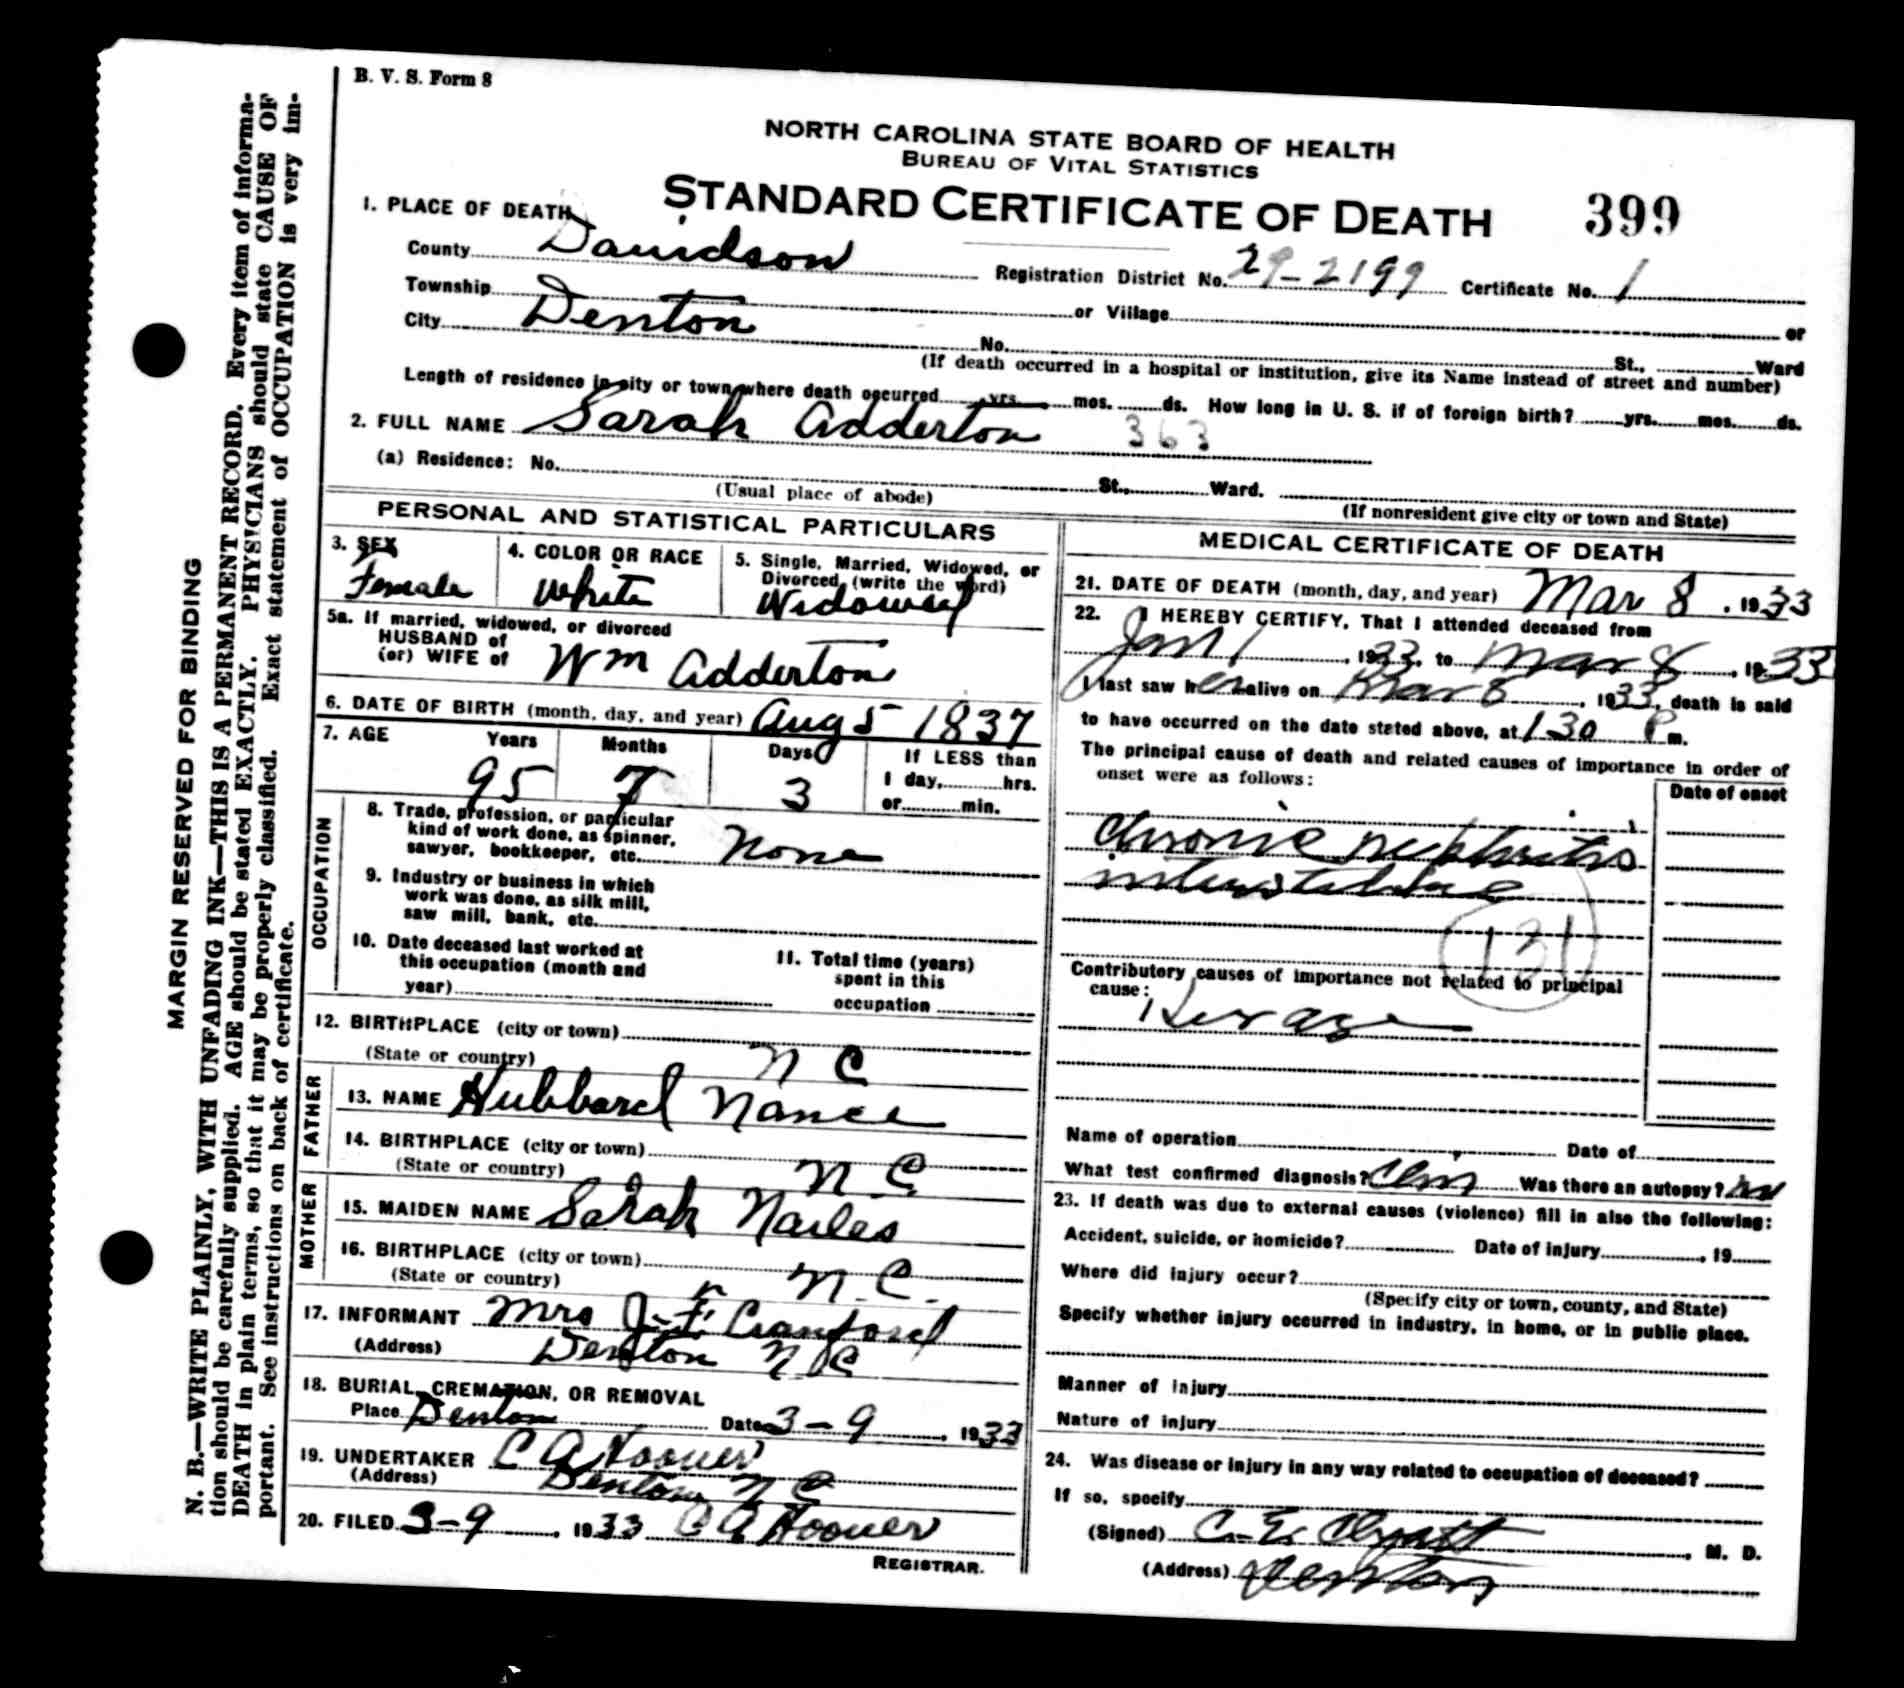 B. V. S. Form 8
NORTH CAROLINA STATE BOARD OF HEALTH
BUREAU OF VITAL STATISTICS
STANDARD CERTIFICATE OF DEATH 399
1. PLACE OF DEATH
County Davidson Registration District No. 29-2199 Certificate No. 1
Township or Village or
City Denton No. St., Ward
(If death occurred in a hospital or institution, give its Name instead of street and number)
Length of residence in city or town where death occurred yrs. mos. ds. How long in U. S. if of foreign birth? yrs. mos. ds.
2. FULL NAME Sarah Adderton 363
(a) Residence: No. St., Ward.
(Usual place of abode) (If nonresident give city or town and State)
PERSONAL AND STATISTICAL PARTICULARS
3. SEX
Female
4. COLOR OR RACE
White
5. Single, Married, Widowed, or
Divorced (write the word)
Widowed
5a. If married, widowed, or divorced
HUSBAND of
(or) WIFE of Wm Adderton
6. DATE OF BIRTH (month, day, and year) Aug 5 1837
7. AGE Years Months Days If LESS than
1 day, hrs.
95 7 3 or min.
OCCUPATION
8. Trade, profession, or particular
kind of work done, as spinner,
sawyer, bookkeeper, etc. None
9. Industry or business in which
work was done, as silk mill,
saw mill, bank, etc.
10. Date deceased last worked at
this occupation (month and
year)
11. Total time (years)
spent in this
occupation
12. BIRTHPLACE (city or town)
(State or country) N C
FATHER
13. NAME Hubbard Nance
14. BIRTHPLACE (city or town)
(State or country) N C
MOTHER
15. MAIDEN NAME Sarah Nailes
16. BIRTHPLACE (city or town)
(State or country) N. C.
17. INFORMANT Mrs J. F. Cranford
(Address) Denton N C
18. BURIAL, CREMATION, OR REMOVAL
Place Denton Date 3-9, 1933
19. UNDERTAKER C A Hoover
(Address) Denton N C
20. FILED 3-9, 1933 C A Hoover
REGISTRAR.
MEDICAL CERTIFICATE OF DEATH
21. DATE OF DEATH (month, day, and year) Mar 8, 1933
22. I HEREBY CERTIFY, That I attended deceased from
Jan 1, 1933, to Mar 8, 1933
I last saw her alive on Mar 8, 1933, death is said
to have occurred on the date stated above, at 1 30 P m.
The principal cause of death and related causes of importance in order of
onset were as follows:
Date of onset
Chronic nephritis
interstitial
131
Contributory causes of importance not related to principal
cause:
Name of operation Date of
What test confirmed diagnosis? Clin Was there an autopsy? no
23. If death was due to external causes (violence) fill in also the following:
Accident, suicide, or homicide? Date of injury, 19
Where did injury occur?
(Specify city or town, county, and State)
Specify whether injury occurred in industry, in home, or in public place.
Manner of injury
Nature of injury
24. Was disease or injury in any way related to occupation of deceased?
If so, specify
(Signed) C. E. , M. D.
(Address) Denton
MARGIN RESERVED FOR BINDING
N. B.—WRITE PLAINLY, WITH UNFADING INK—THIS IS A PERMANENT RECORD. Every item of informa-
tion should be carefully supplied. AGE should be stated EXACTLY. PHYSICIANS should state CAUSE OF
DEATH in plain terms, so that it may be properly classified. Exact statement of OCCUPATION is very im-
portant. See instructions on back of certificate.